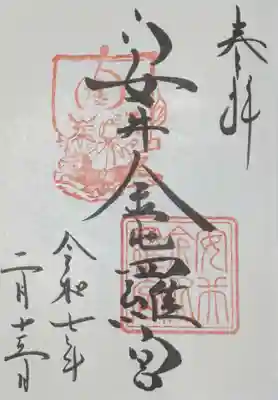 奉拝
安井金比羅宮
令和七年
二月十三日